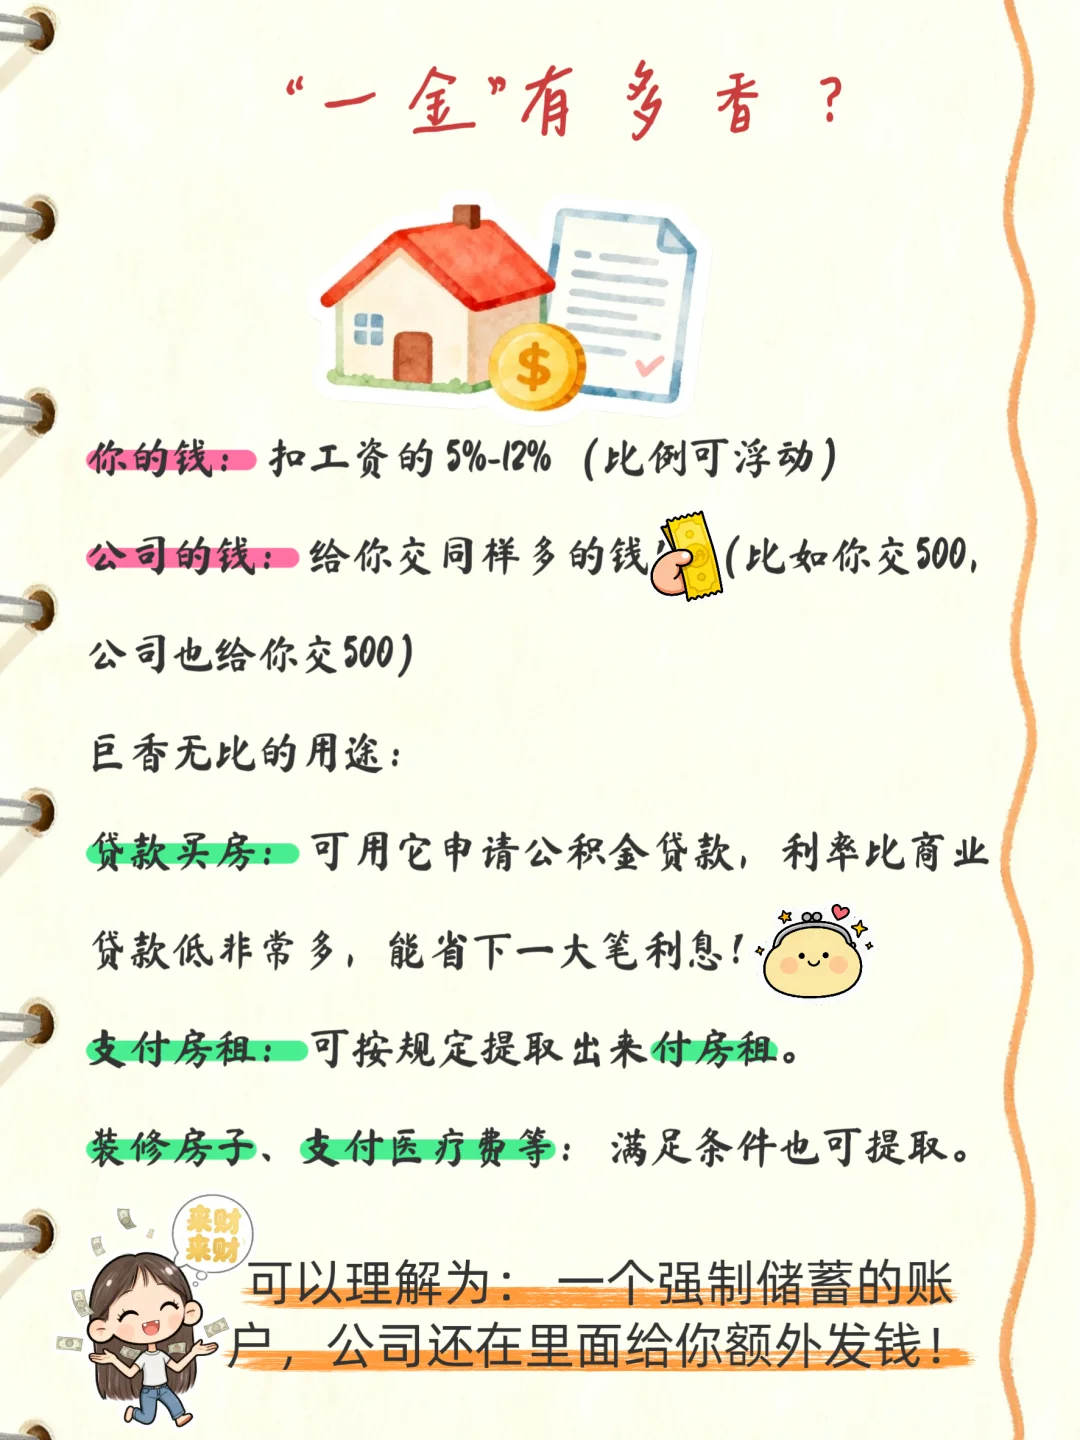 “一金”有多香？
$
你的钱：扣工资的5%-12%（比例可浮动）
公司的钱：给你交同样多的钱（比如你交500，
公司也给你交500）
巨香无比的用途：
贷款买房：可用它申请公积金贷款，利率比商业
贷款低非常多，能省下一大笔利息！
支付房租：可按规定提取出来付房租。
装修房子、支付医疗费等：满足条件也可提取。
来财
来财
可以理解为：一个强制储蓄的账
户，公司还在里面给你额外发钱！